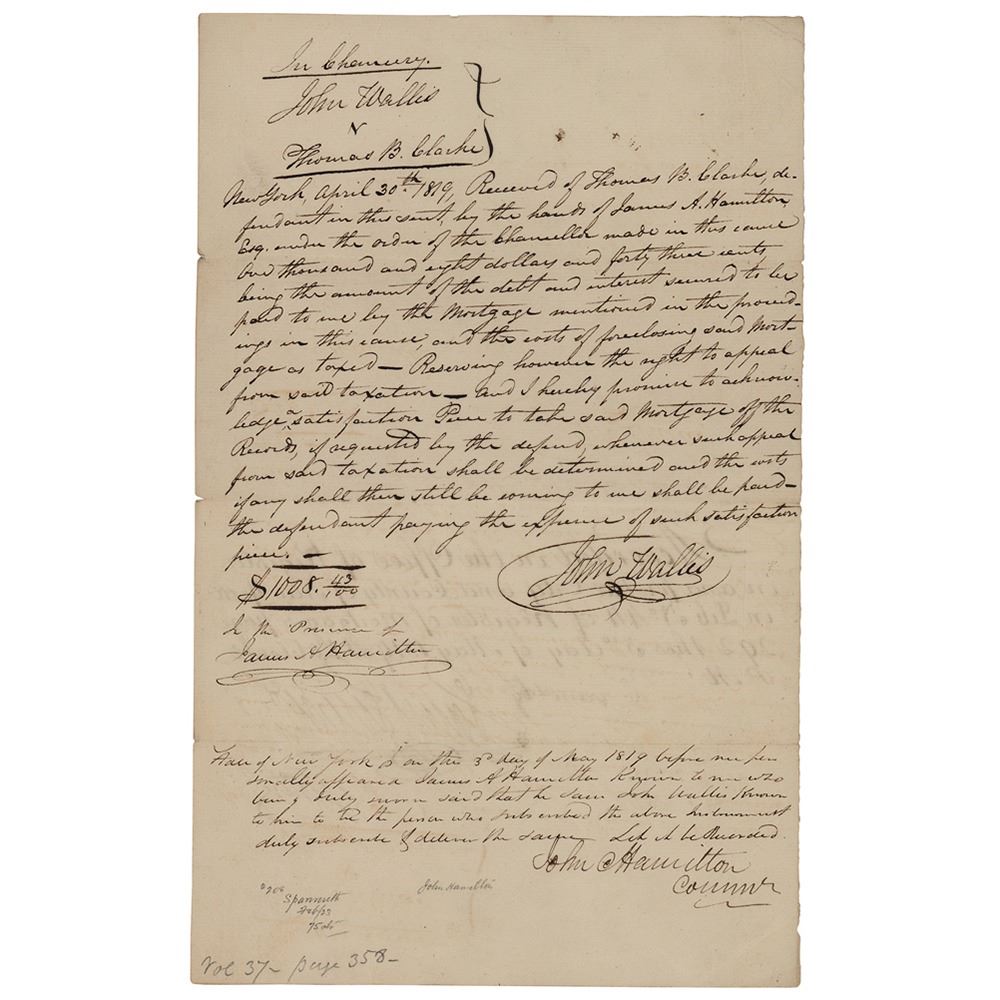 In Chancery.
John Wallis
v
Thomas B. Clarke
New York, April 30th 1819, Received of Thomas B. Clarke, de-
fendant in this suit, by the hands of James A. Hamilton,
Esq. under the order of the Chancellor made in this cause
One thousand and eight dollars and forty three cents,
being the amount of the debt and interest secured to be
paid to me by the Mortgage mentioned in the proceed-
ings in this cause, and the costs of foreclosing said Mort-
gage as taxed — Reserving however the right to appeal
from said taxation — and I hereby promise to acknow-
ledge a satisfaction Piece to take said Mortgage off the
Records, if requested by the defend, whenever such appeal
from said taxation shall be determined and the costs
if any shall then still be coming to me shall be paid—
the defendant paying the expence of such satisfaction
piece. —
John Wallis
$1008. 43/100
In the Presence of
James A Hamilton
State of New York ss on the 3d day of May 1819 before me per
sonally appeared James A Hamilton Known to me who
being duly sworn said that he saw John Wallis Known
to him to be the person who subscribed the above Instrument
duly subscribe & deliver the same Let it be Recorded.
John C Hamilton
Commr
John Hamilton
Spannuth
Vol 37— page 358—